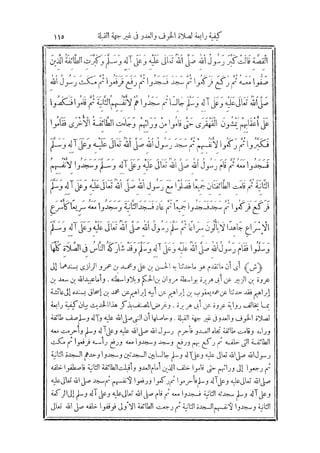 كيفية رابعة لصلاة الخوف والعدو في غير جهة القبلة ١١٥
القصة قالت كبر رسول الله صلى الله تعالى عليه وعلى آله وسلم وكبرت الطائفة الذين
صفوا معه ثم ركع فركعوا ثم سجد فسجدوا ثم رفع فرفعوا ثم مكث رسول الله
صلى الله تعالى عليه وعلى آله وسلم جالسا ثم سجدوا هم لأنفسهم الثانية ثم قاموا فنكصوا
على أعقابهم يمشون القهقرى حتى قاموا من ورائهم وجاءت الطائفة الأخرى فقاموا
فكبروا ثم ركعوا لأنفسهم ثم سجد رسول الله صلى الله تعالى عليه وعلى آله وسلم
فسجدوا معه ثم قام رسول الله صلى الله تعالى عليه وعلى آله وسلم وسجدوا لأنفسهم
الثانية ثم قامت الطائفتان جميعا فصلوا مع رسول الله صلى الله تعالى عليه وعلى آله وسلم
فركع فركعوا ثم سجد فسجدوا جميعا ثم عاد فسجد الثانية وسجدوا معه سريعا كأسرع
الإسراع جاهدا لا يألون سراعا ثم سلم رسول الله صلى الله تعالى عليه وعلى آله وسلم
وسلموا فقام رسول الله صلى الله تعالى عليه وعلى آله وسلم وقد شاركه الناس في الصلاة كلها
(ش) أى أن ما تقدم هو ما حدثنا به الحسن بن على ومحمد بن عمرو الرازى بسندهما إلى
عروة بن الزبير عن أبى هريرة بواسطة مروان بن الحكم وبلا واسطة. وأما عبيد الله بن سعد بن
إبراهيم فقد حدثنا عن عمه يعقوب بن إبراهيم عن أبيه إبراهيم عن محمد بن إسحاق بسنده إلى عائشة
بما يخالف رواية عروة عن أبى هريرة. وغرض المصنف بذكر هذا الحديث بيان كيفية رابعة
لصلاة الخوف والعدو فى غير جهة القبلة. وحاصلها أن النبى صلى الله عليه وعلى آله وسلم صف طائفة
وراءه وقامت طائفة تجاه العدو فأحرم رسول الله صلى الله عليه وعلى آله وسلم وأحرمت معه
الطائفة التى خلفه ثم ركع بهم ورفع وسجد وسجدوا معه ورفع رأسه فرفعوا ثم مكث
رسول الله صلى الله تعالى عليه وعلى آله وسلم جالسا بين السجدتين وسجدوا وحدهم السجدة الثانية
ثم رجعوا إلى ورائهم حتى قاموا خلف الذين أمام العدو وأقبلت الطائفة الثانية فاصطفوا خلفه
صلى الله عليه وعلى آله وسلم فأحرموا ثم ركعوا ورفعوا لأنفسهم ثم سجد صلى الله تعالى عليه
وعلى آله وسلم سجدته الثانية فسجدوا معه ثم قام صلى الله تعالى عليه وعلى آله وسلم إلى الركعة
الثانية وسجدوا لأنفسهم السجدة الثانية ثم رجعت الطائفة الأولى فوقفوا خلفه صلى الله تعالى